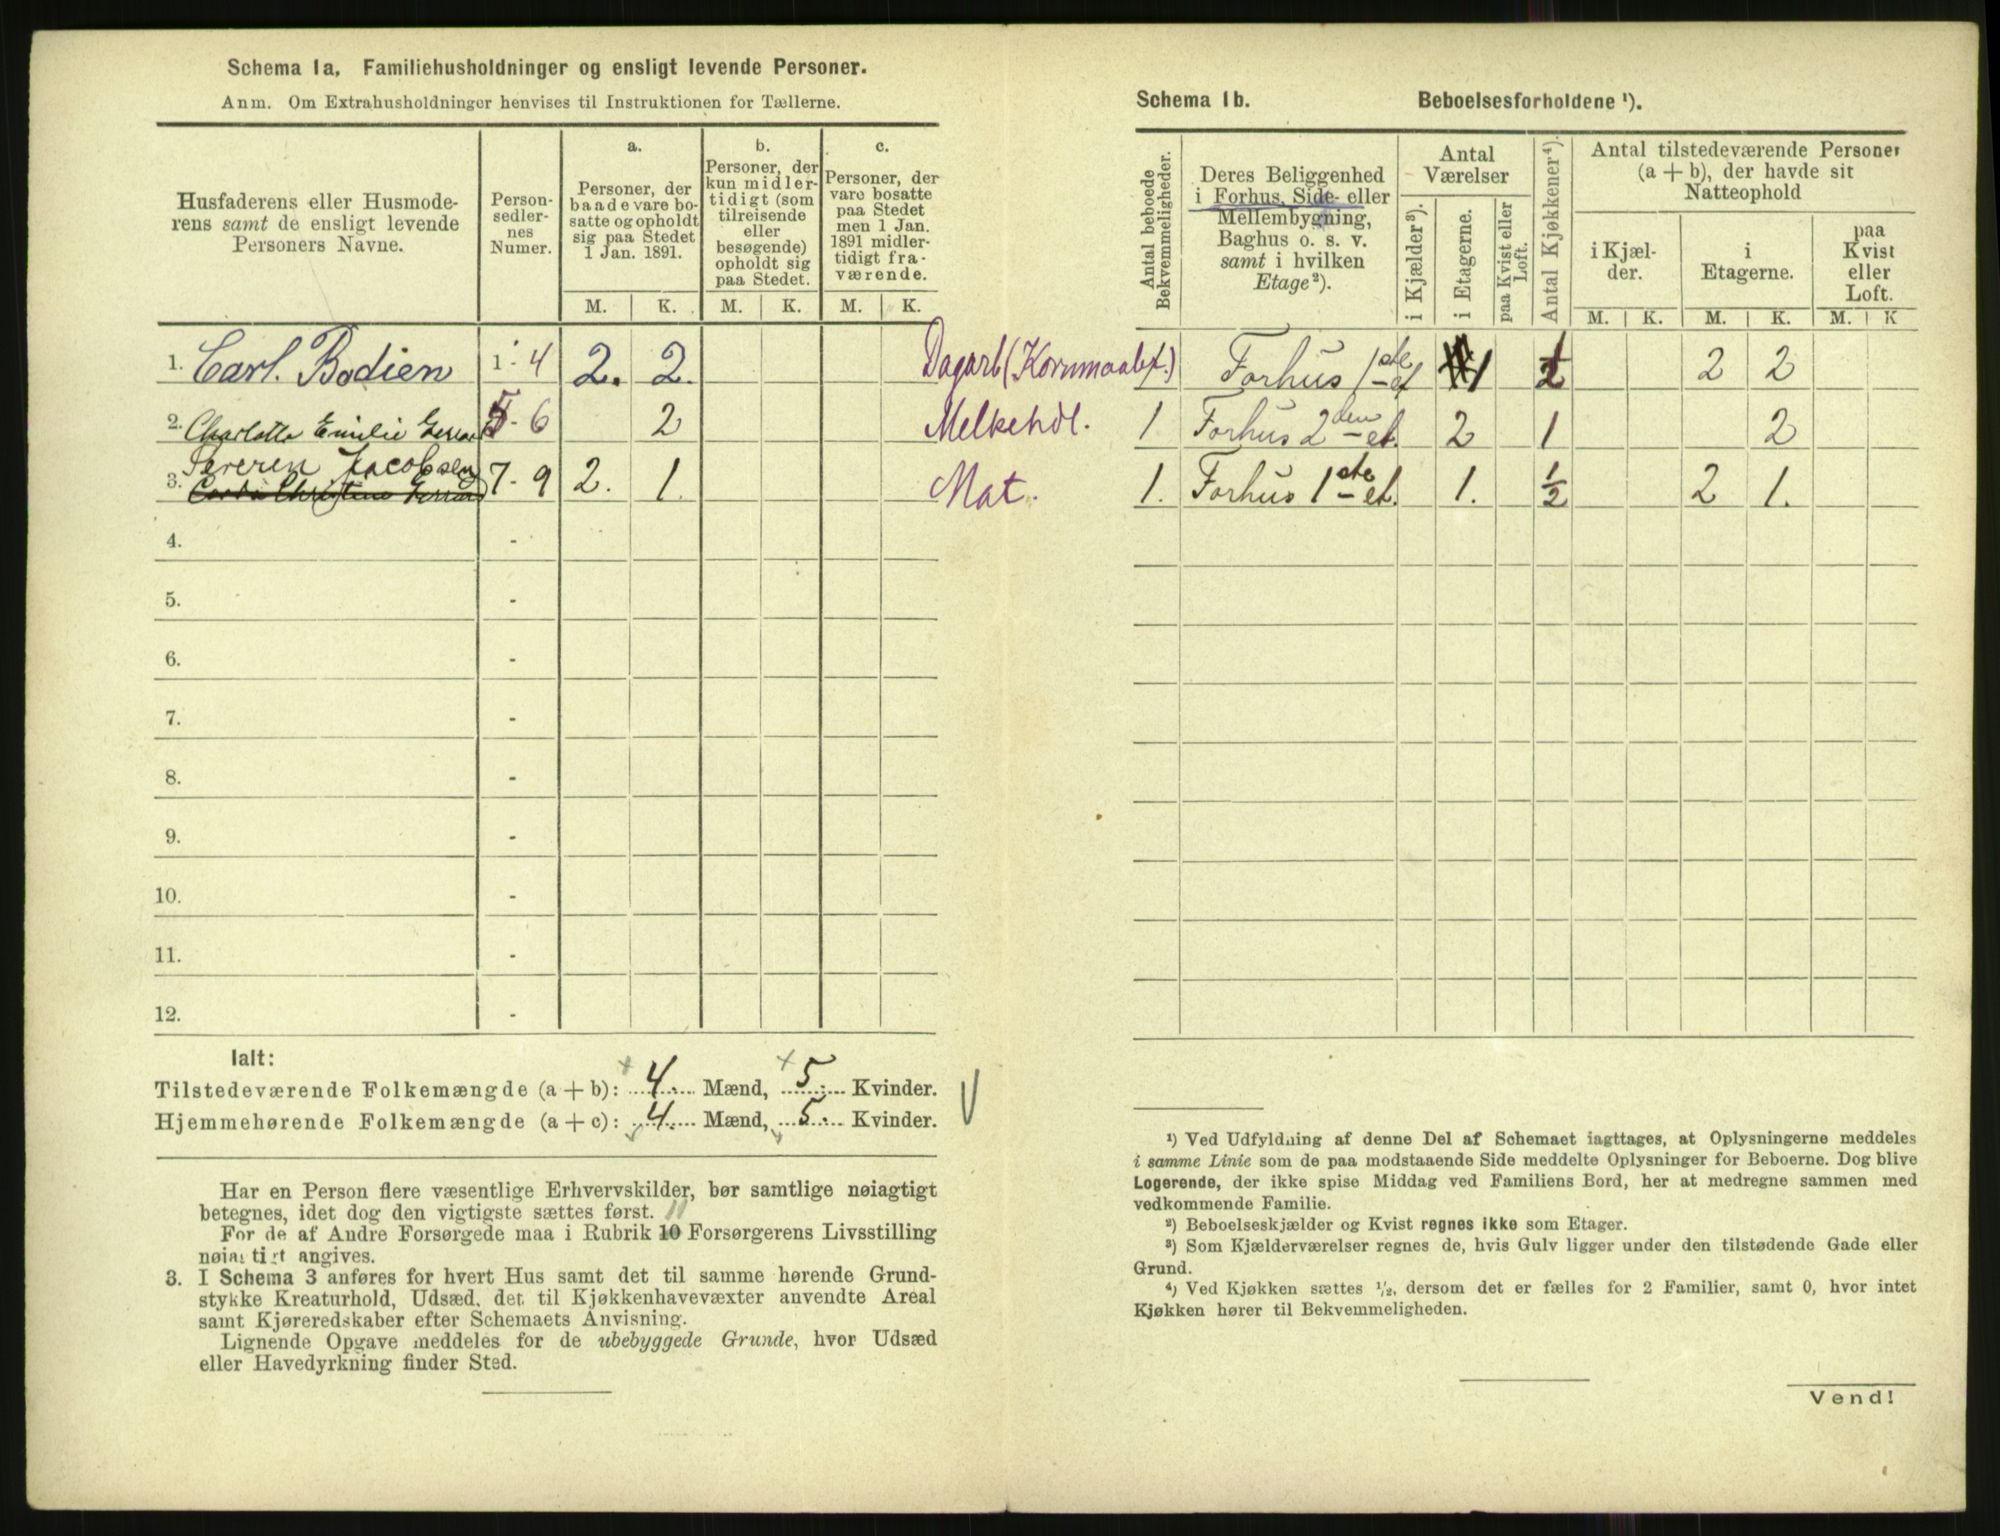 Schema 1a. Familiehusholdninger og ensligt levende Personer.
Anm. Om Extrahusholdninger henvises til Instruktionen for Tællerne.
Husfaderens eller Husmode-
rens samt de ensligt levende
Personers Navne.
Person-
sedler-
nes
Numer.
a.
Personer, der
baade vare bo-
satte og opholdt
sig paa Stedet
1 Jan. 1891.
b.
Personer, der
kun midler-
tidigt (som
tilreisende
eller
besøgende)
opholdt sig
paa Stedet.
c.
Personer, der
vare bosatte
paa Stedet
men 1 Jan.
1891 midler-
tidigt fra-
værende.
M. K. M. K. M. K.
1. Carl. Bodien 1 - 4 2. 2. Dagarb (Kornmaalst.)
2. Charlotte Emilie 5 - 6 2 Melkehdl.
Severen Jacobsen
3. 7 - 9 2. 1. Mat.
4. -
5. -
6. -
7. -
8. -
9. -
10. -
11. -
12. -
Ialt:
Tilstedeværende Folkemængde (a + b): 4. Mænd, 5. Kvinder.
Hjemmehørende Folkemængde (a + c): 4. Mænd, 5. Kvinder.
Har en Person flere væsentlige Erhvervskilder, bør samtlige nøiagtigt
betegnes, idet dog den vigtigste sættes først. 11
For de af Andre Forsørgede maa i Rubrik 10 Forsørgerens Livsstilling
nøiagtigt angives.
3. I Schema 3 anføres for hvert Hus samt det til samme hørende Grund-
stykke Kreaturhold, Udsæd, det til Kjøkkenhavevæxter anvendte Areal
samt Kjøreredskaber efter Schemaets Anvisning.
Lignende Opgave meddeles for de ubebyggede Grunde, hvor Udsæd
eller Havedyrkning finder Sted.
Schema 1b. Beboelsesforholdene ¹).
Antal beboede
Bekvemmeligheder.
Deres Beliggenhed
i Forhus, Side- eller
Mellembygning,
Baghus o. s. v.
samt i hvilken
Etage²).
Antal
Værelser
i Kjælder³).
i Etagerne.
paa Kvist eller
Loft.
Antal Kjøkkener⁴).
Antal tilstedeværende Personer
(a + b), der havde sit
Natteophold
i Kjæl-
der.
i
Etagerne.
paa
Kvist
eller
Loft.
M. K. M. K. M. K
Forhus 1ste et 1 2 2
1 Forhus 2den et. 2 1 2
1. Forhus 1ste et. 1. ½ 2 1.
¹) Ved Udfyldning af denne Del af Schemaet iagttages, at Oplysningerne meddeles
i samme Linie som de paa modstaaende Side meddelte Oplysninger for Beboerne. Dog blive
Logerende, der ikke spise Middag ved Familiens Bord, her at medregne sammen med
vedkommende Familie.
²) Beboelseskjælder og Kvist regnes ikke som Etager.
³) Som Kjælderværelser regnes de, hvis Gulv ligger under den tilstødende Gade eller
Grund.
⁴) Ved Kjøkken sættes ½, dersom det er fælles for 2 Familier, samt 0, hvor intet
Kjøkken hører til Bekvemmeligheden.
Vend!